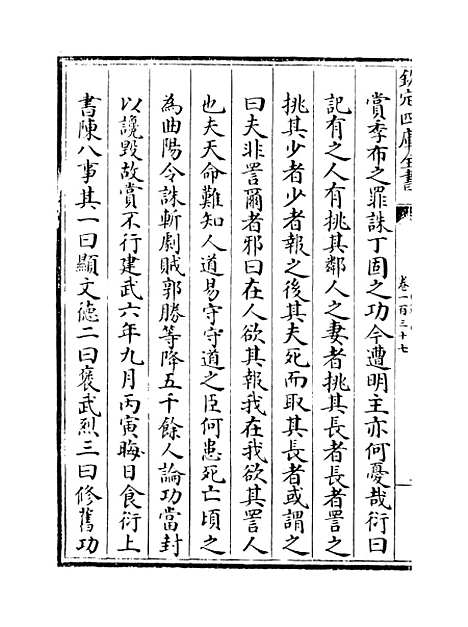 欽定四庫全書
卷一百三十七
賞季布之罪誅丁固之功今遭明主亦何憂哉衍曰
記有之人有挑其鄰人之妻者挑其長者長者詈之
挑其少者少者報之後其夫死而取其長者或謂之
曰夫非詈爾者邪曰在人欲其報我在我欲其詈人
也夫天命難知人道易守守道之臣何患死亡頃之
為曲陽令誅斬劇賊郭勝等降五千餘人論功當封
以讒毁故賞不行建武六年九月丙寅晦日食衍上
書陳八事其一曰顯文徳二曰褒武烈三曰修舊功